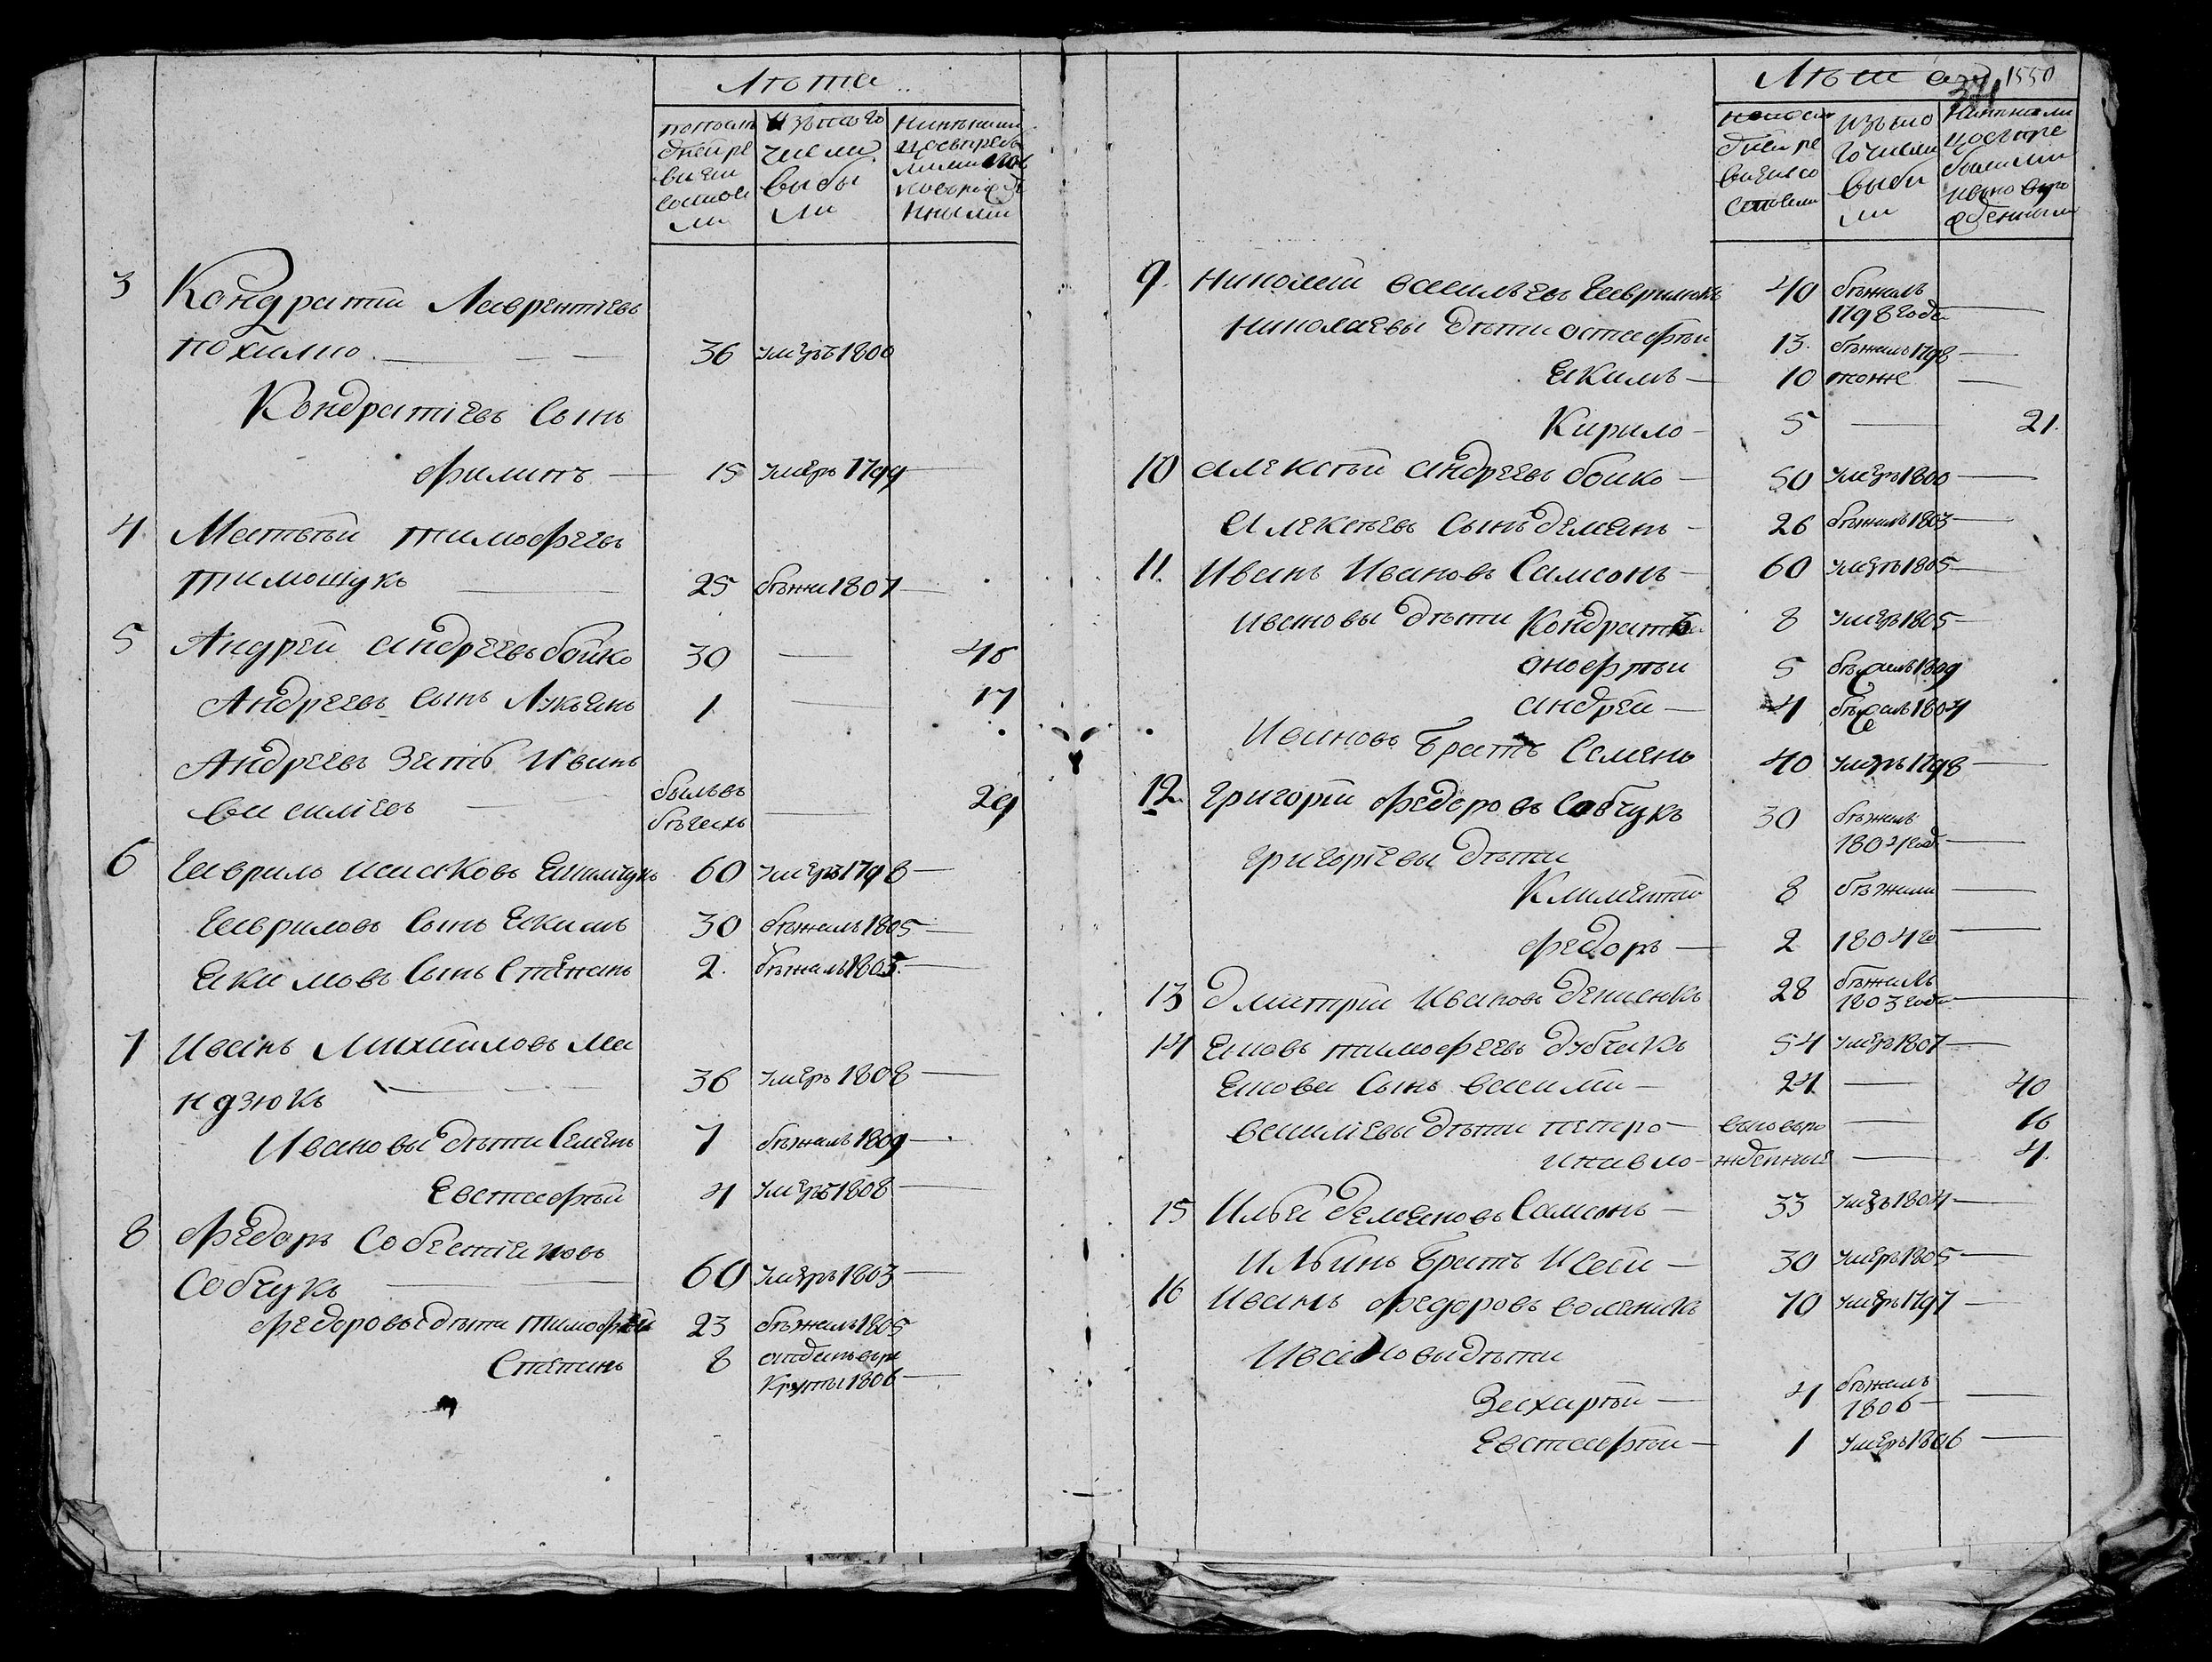 Лѣта
попослѣ
дней ре
визіи
состоя
ли
Изътого
числа
выбы
ли
Нынѣнали
цосъприбы
лыми и
новорожде
нными
3 Кондратій Лаврентіевъ
Похилко 36 умеръ 1800
Кондратіевъ Сынъ
Филипъ 15 умеръ 1799
4 Матвѣй Тимофеевъ
Тимощукъ 25 бѣжа 1807
5 Андрей Андреевъ Бойко 30 — 48
Андреевъ Сынъ Лукьянъ 1 — 17
Андреевъ Зять Иванъ
Василіевъ былъвъ бѣгахъ — 29
6 Гаврило Исаковъ 60 умеръ 1798 —
Гавриловъ Сынъ Екимъ 30 бѣжалъ 1805 —
Екимовъ Сынъ Степанъ 2. бѣжалъ 1805. —
7 Иванъ Михайловъ Ма
ндзюкъ 36 умеръ 1808 —
Ивановы дѣти Семенъ 7 бѣжалъ 1809 —
Евстафѣй 4 умеръ 1808 —
8 Федоръ Собестіяновъ
Собчукъ 60 умеръ 1803 —
Федоровы дѣти Тимофѣй 23 бѣжалъ 1805
Степанъ 8 отданъ въ ре
круты 1806 —
Лѣта 1550
попосл
дней ре
визіи со
стояли
Изъто
го числа
выбы
ли
Нынѣнали
цосъпри
былыми
иново ро
жденными
9. Николай Васильевъ Гаврилюкъ 40 бѣжалъ
1798 года —
Николаевы дѣти Остафѣй 13. бѣжалъ 1798 —
Екимъ — 10 тоже —
Кирило — 5 — 21.
10 Алексѣй Андреевъ Бойко — 50 умеръ 1800 —
Алексѣевъ Сынъ Демянъ — 26 бѣжалъ 1803 —
11. Иванъ Ивановъ Самсонъ — 60 умеръ 1805 —
Ивановы дѣти Кондратъ 8 умеръ 1805 —
Анофрѣй 5 бѣжалъ 1809
Андрей — 4 бѣжалъ 1804
Ивановъ братъ Семенъ 40 умеръ 1798 —
12. Григорій Федоровъ Собчукъ 30 бѣжалъ
1804 год —
Григоріевы дѣти
Климентій 8 бѣжали —
Федоръ — 2 1804 го —
13 Дмитрій Ивановъ Денисюкъ 28 бѣжалъ
1803 года —
14 Яковъ Тимофеевъ Дубчакъ 54 умеръ 1807 —
Якова Сынъ Василій — 24 — 40
Василіевы дѣти Петро — вновьро — 16
и Павло — жденные — 4.
15 Илья Демяновъ Самсонъ — 33 умеръ 1804 —
Ильинъ братъ Исай — 30 умеръ 1805 —
16 Иванъ Федоровъ Волянюкъ 70 умеръ 1797 —
Ивановы дѣти
Захарѣй — 4 бѣжалъ
1806 —
Евстафѣй — 1 умеръ 1806 —